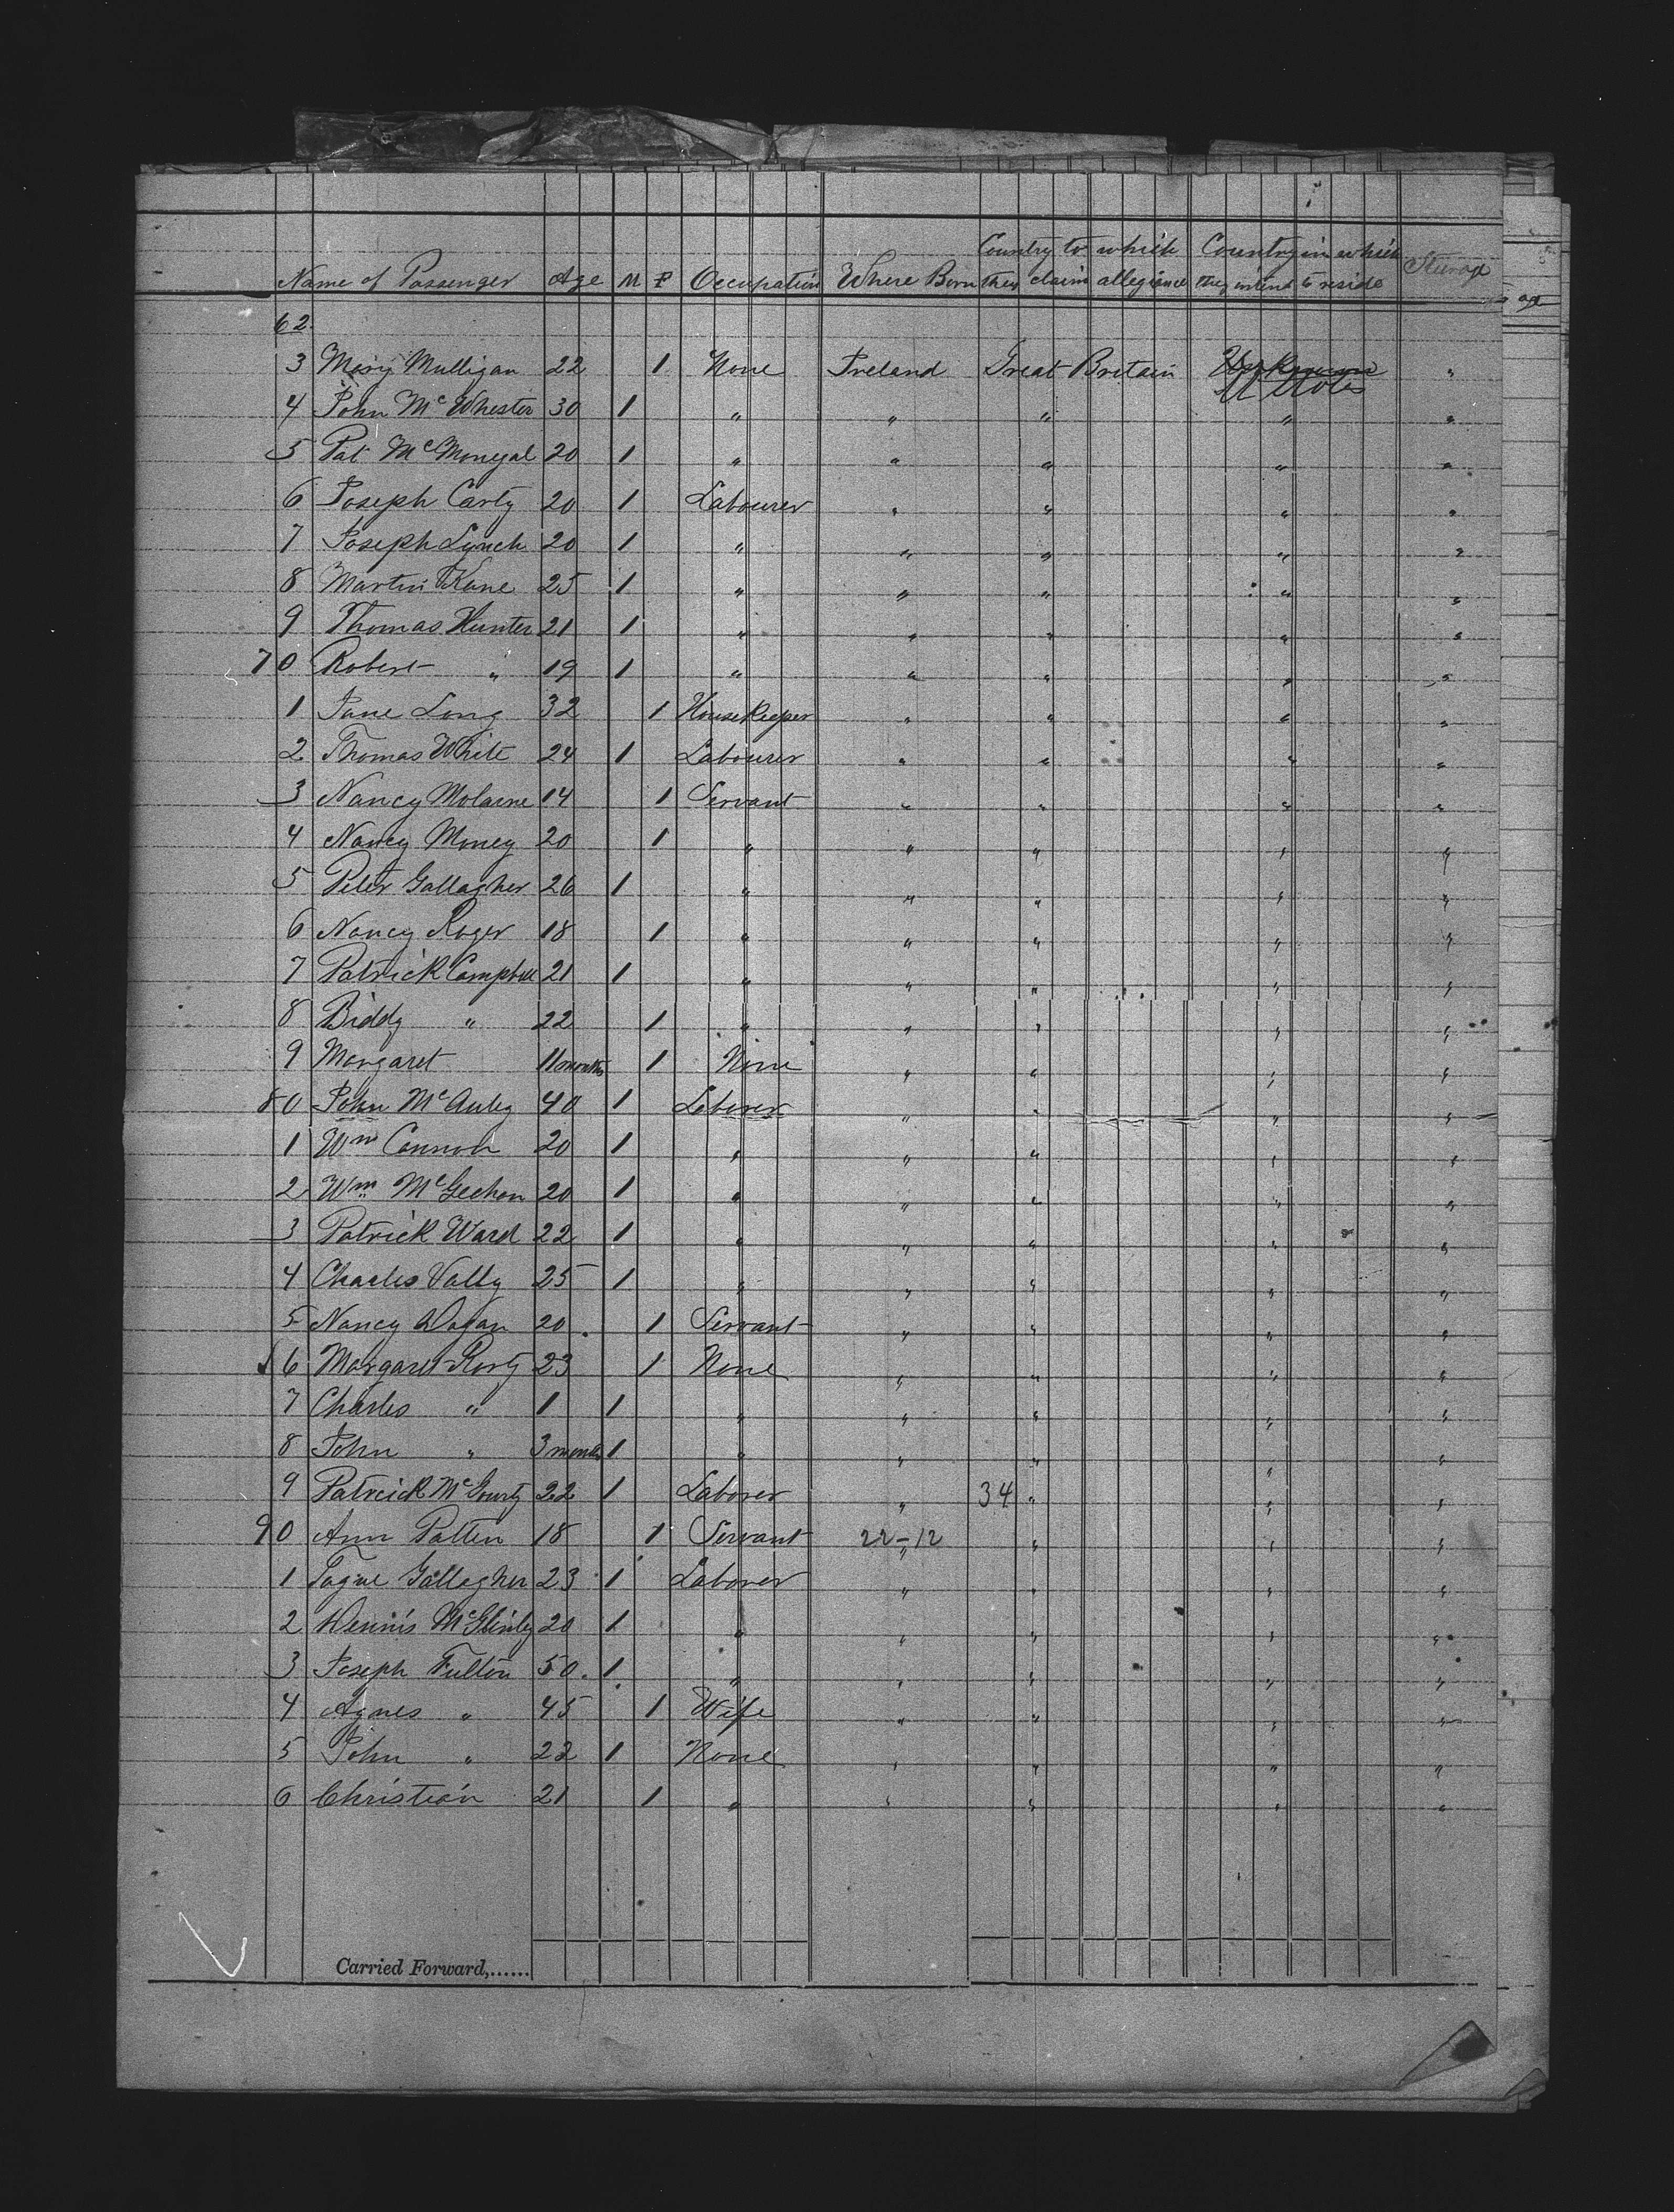 Country to which Country in which
Name of Passenger Age M F Occupation Where Born they claim allegiance they intend to reside Steerage
62
3 Mary Mulligan 22 1 None Ireland Great Britain U States "
4 John McWhester 30 1 " " " " "
5 Pat McMonegal 20 1 " " " " "
6 Joseph Carty 20 1 Labourer " " " "
7 Joseph Lynch 20 1 " " " " "
8 Martin Kane 25 1 " " " " "
9 Thomas Hunter 21 1 " " " " "
70 Robert " 19 1 " " " " "
1 Jane Long 32 1 HouseKeeper " " " "
2 Thomas White 24 1 Labourer " " " "
3 Nancy Molarne 14 1 Servant " " " "
4 Nancy Money 20 1 " " " " "
5 Peter Gallagher 26 1 " " " " "
6 Nancy Roger 18 1 " " " " "
7 Patrick Campbell 21 1 " " " " "
8 Biddy " 22 1 " " " " "
9 Margaret 11 months 1 None " " " "
80 John McAuley 40 1 Laborer " " " "
1 Wm Cannon 20 1 " " " " "
2 Wm McGeehan 20 1 " " " " "
3 Patrick Ward 22 1 " " " " "
4 Charles Vally 25 1 " " " " "
5 Nancy Dogan 20 1 Servant " " " "
86 Margaret Rorty 23 1 None " " " "
7 Charles " 1 1 " " " " "
8 John " 3 months 1 " " " " "
9 Patrick McGourty 22 1 Laborer " 34 " " "
90 Ann Patten 18 1 Servant 22-12 " " " "
1 Tague Gallagher 23 1 Laborer " " " "
2 Dennis McGlinley 20 1 " " " " "
3 Joseph Fulton 50 1 " " " " "
4 Agnes " 45 1 Wife " " " "
5 John " 22 1 None " " " "
6 Christian 21 1 " " " " "
Carried Forward,......